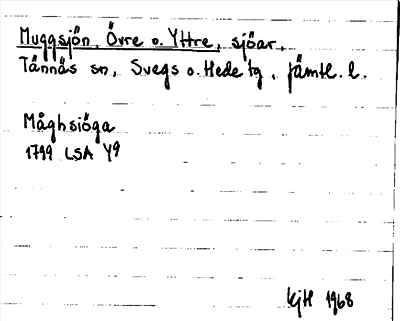 Muggsjön, Övre o. Yttre, sjöar,
Tännäs sn, Svegs o. Hede tg, Jämtl. l.
Måghsiöga
1799 LSA Y9
KjH 1968